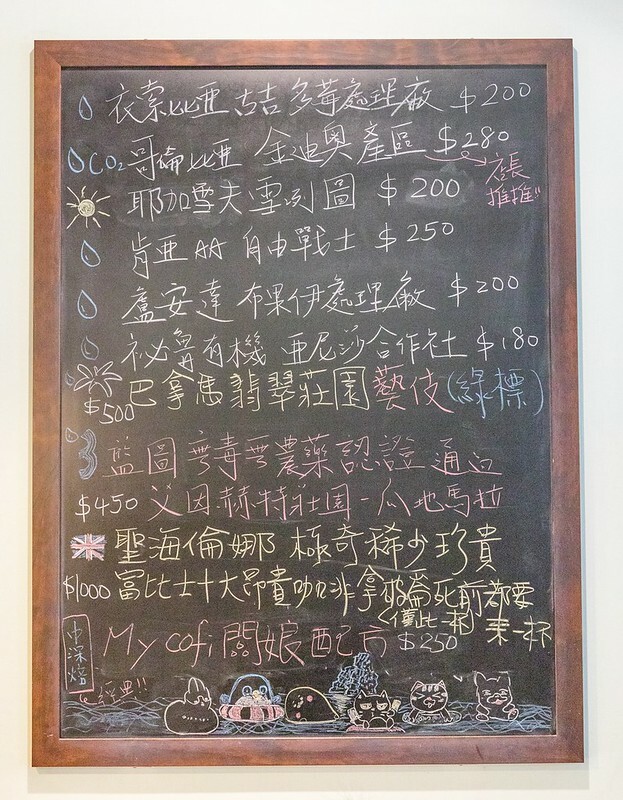 衣索比亞 古吉 多莓處理廠 $200
CO₂ 哥倫比亞 金迪奧產區 $280
店長
推推!!
耶加雪夫 雲列圖 $200
肯亞 AA 自由戰士 $250
盧安達 布果伊處理廠 $200
祕魯有機 亞尼莎合作社 $180
巴拿馬翡翠莊園藝伎(綠標)
$500
藍圖 零毒零農藥認證 通過
$450 艾茵赫特莊園-瓜地馬拉
聖海倫娜 極奇稀少珍貴
$1000 富比士十大昂貴咖啡 拿破崙死前都要
(僅此一杯) 來一杯
中深焙
My cofi 闆娘配方 $250
經典!!